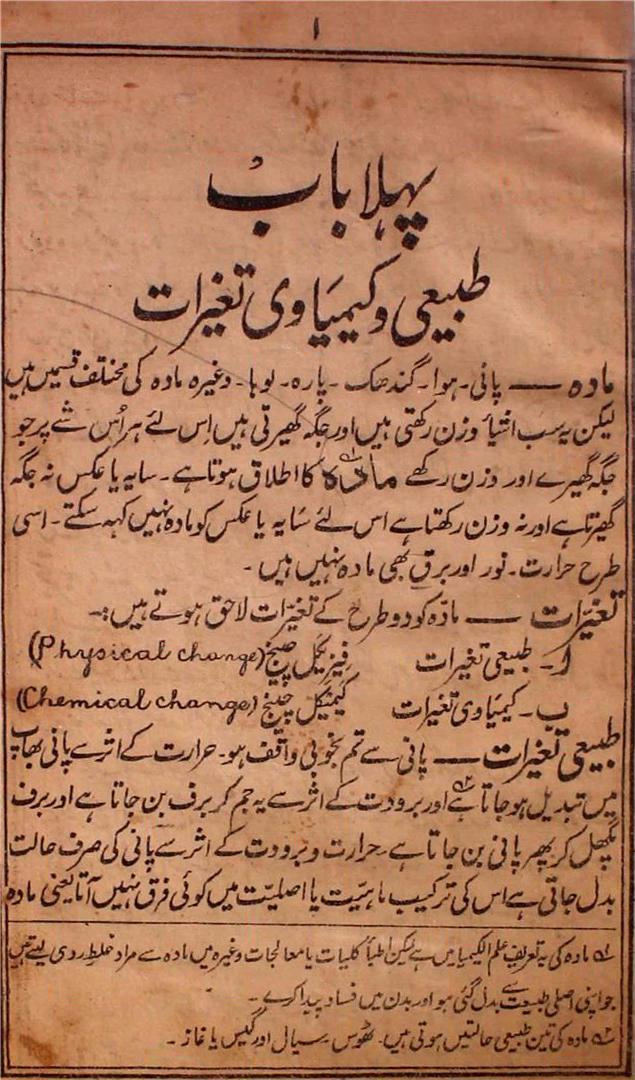 ۱
پہلا باب
طبیعی و کیمیاوی تغیرات
مادہ — پانی۔ ہوا۔ گندھک۔ پارہ۔ لوہا۔ وغیرہ مادہ کی مختلف قسمیں ہیں
لیکن یہ سب اشیأ وزن رکھتی ہیں اور جگہ گھیرتی ہیں اِس لئے ہر اُس شے پر جو
جگہ گھیرے اور وزن رکھے مادّہ ؂۱ کا اطلاق ہوتا ہے۔ سایہ یا عکس نہ جگہ
گھیرتا ہے اور نہ وزن رکھتا ہے اس لئے سَایہ یا عکس کو مادہ نہیں کہہ سکتے۔ اسی
طرح حرارت۔ نور اور برق بھی مادہ نہیں ہیں۔
تغیّرات — مادّہ کو دو طرح کے تغیّرات لاحق ہوتے ہیں:۔
ا۔ طبیعی تغیرات فیزیکل چینج (Physical change)
ب۔ کیمیاوی تغیرات کیمیکل چینج (Chemical change)
طبیعی تغیّرات — پانی سے تم بخوبی واقف ہو۔ حرارت کے اثر سے پانی بھاپ
میں تبدیل ہو جاتا ہے ؂۲ اور برودت کے اثر سے یہ جم کر برف بن جاتا ہے اور برف
پگھل کر پھر پانی بن جاتا ہے۔ حرارت و برودت کے اثر سے پانی کی صرف حالت
بدل جاتی ہے اس کی ترکیب ماہیّت یا اصلیّت میں کوئی فرق نہیں آتا یعنی مادہ
؂۱ مادہ کی یہ تعریف علم الکیمیا میں ہے لیکن اطبأ کلیات یا معالجات وغیرہ میں مادہ سے مراد خلط ردی لیتے ہیں
جو اپنی اصلی طبیعت سے بدل گئی ہو اور بدن میں فساد پیدا کرے۔
؂۲ مادہ کی تین طبیعی حالتیں ہوتی ہیں۔ ٹھوس۔ سیال اور گیس یا غاز۔